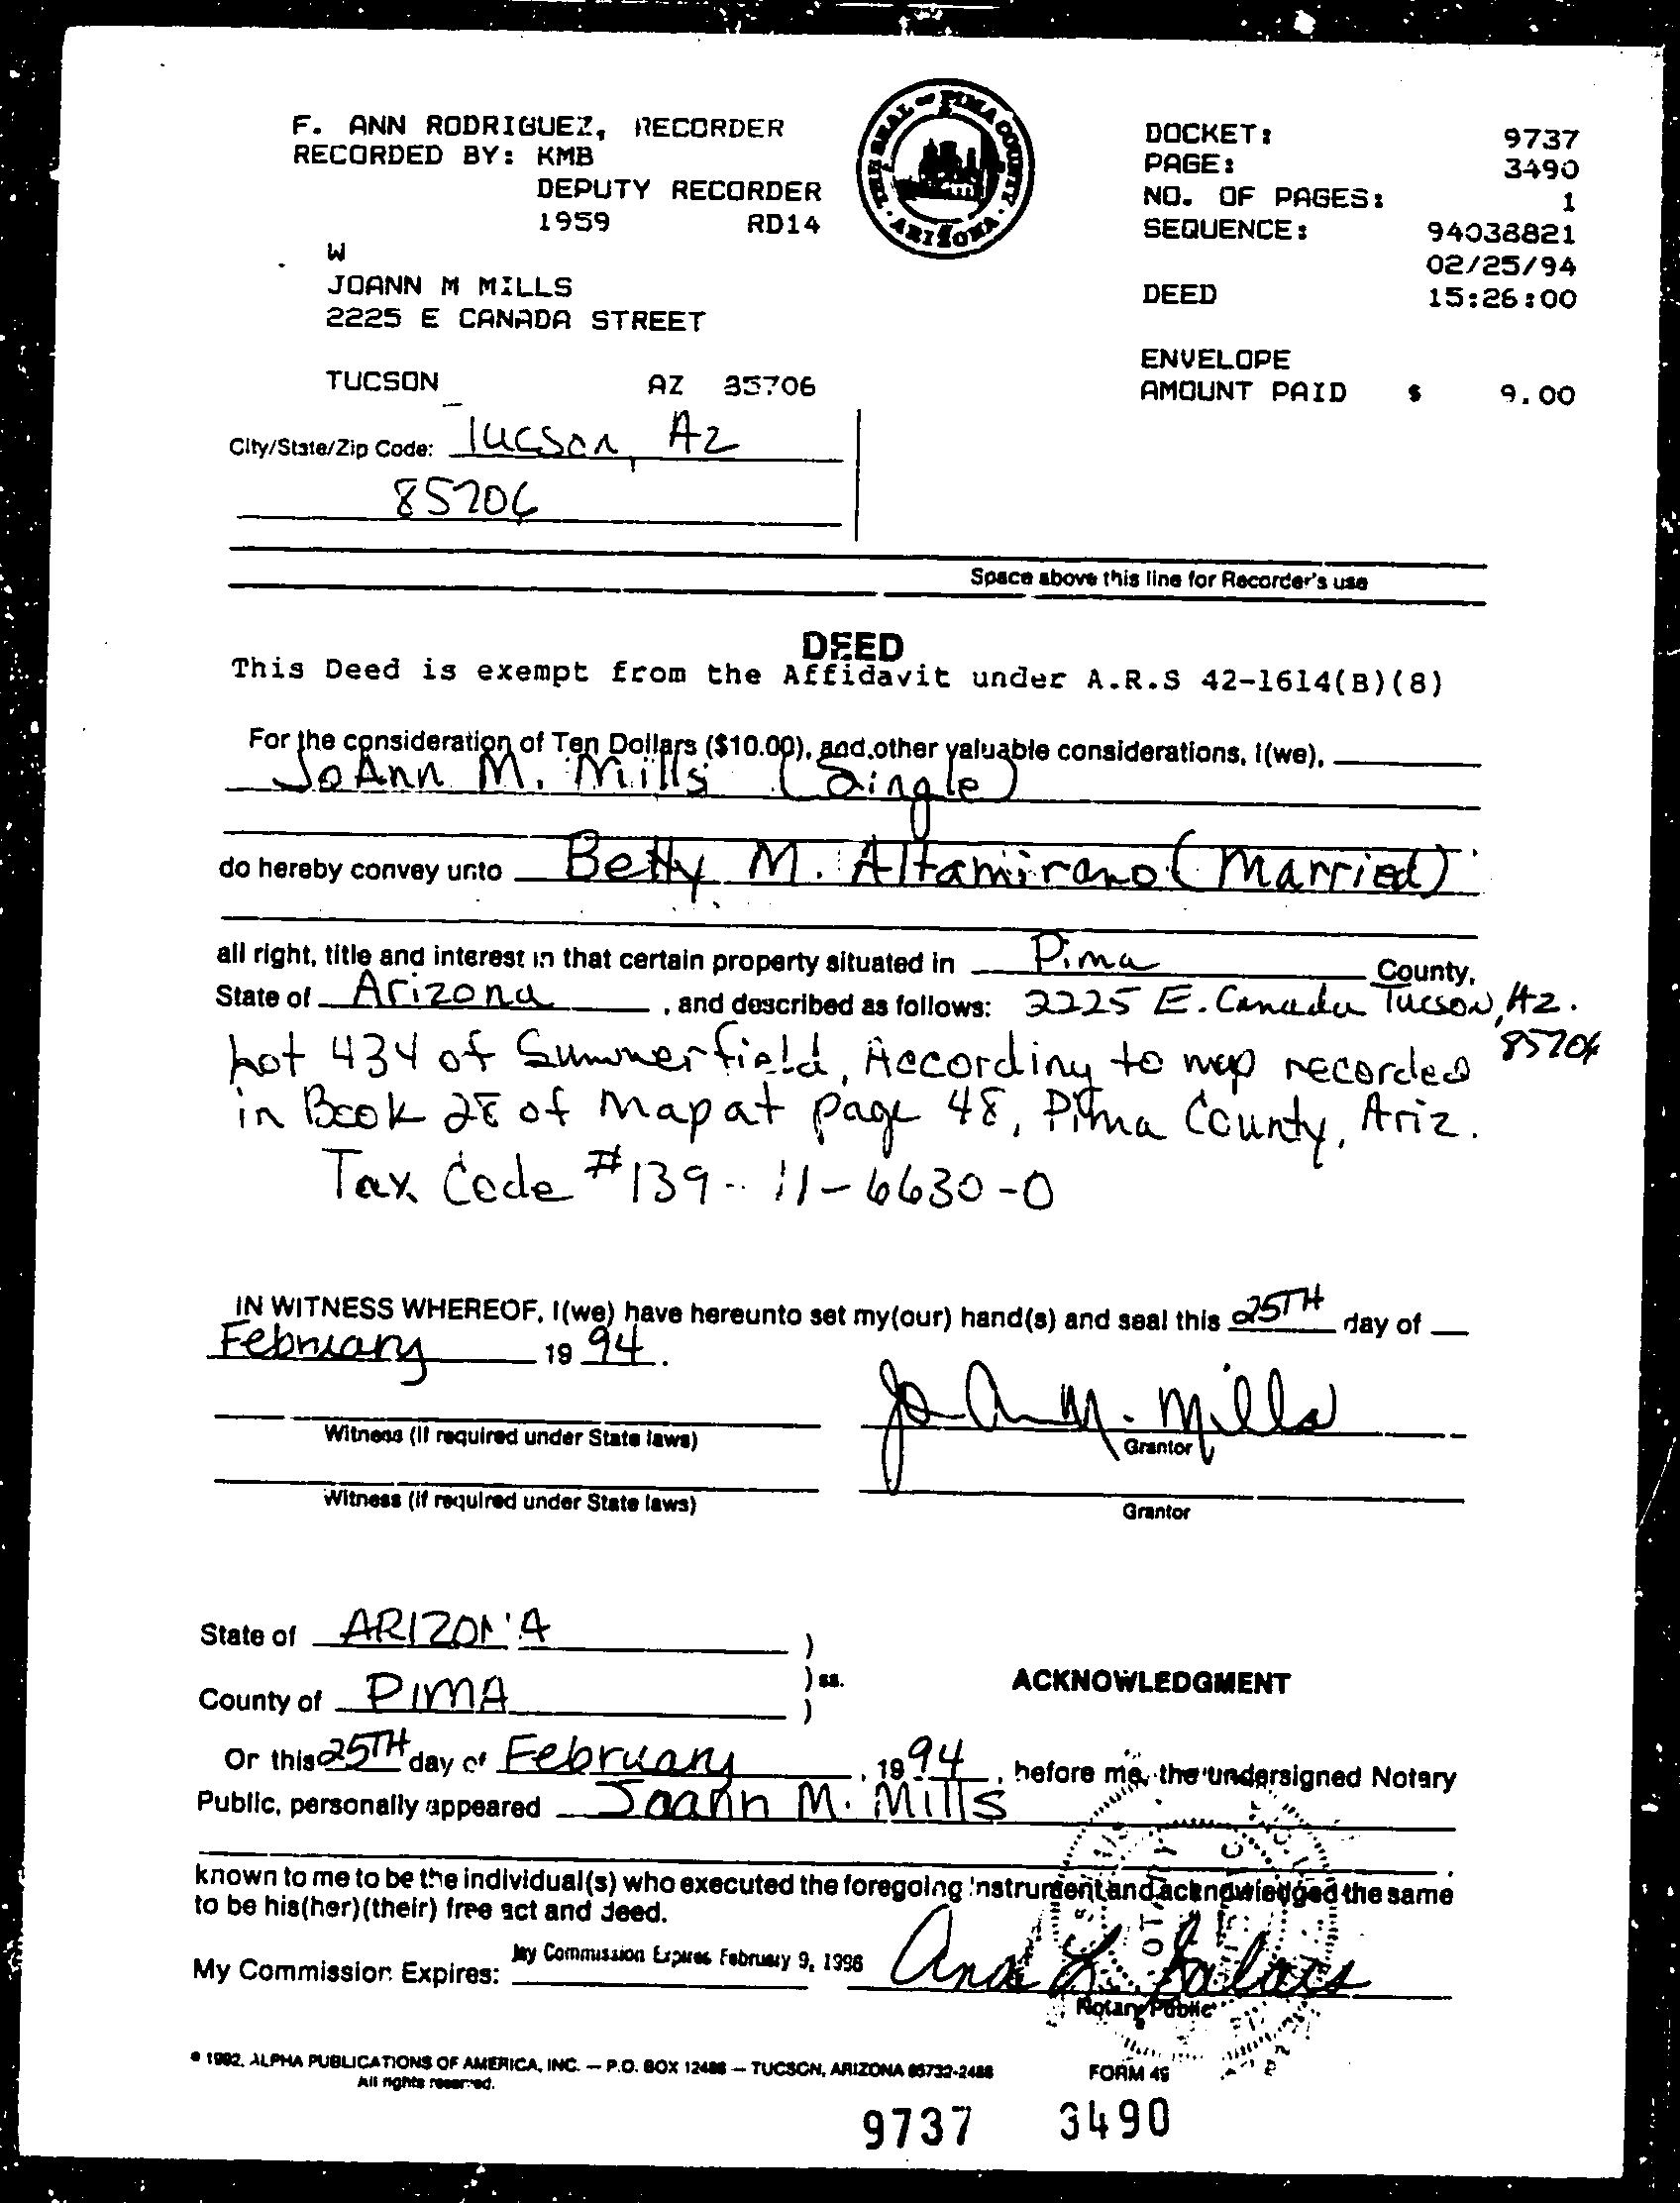 F. ANN RODRIGUEZ, RECORDER
RECORDED BY: KMB
DEPUTY RECORDER
1959 RD14
W
JOANN M MILLS
2225 E CANADA STREET
TUCSON AZ 85706
THE SEAL OF PIMA COUNTY · ARIZONA ·
DOCKET: 9737
PAGE: 3490
NO. OF PAGES: 1
SEQUENCE: 94038821
02/25/94
DEED 15:26:00
ENVELOPE
AMOUNT PAID $ 9.00
City/State/Zip Code: Tucson, Az
85706
Space above this line for Recorder's use
DEED
This Deed is exempt from the Affidavit under A.R.S 42-1614(B)(8)
For the consideration of Ten Dollars ($10.00), and other valuable considerations, I(we),
JoAnn M. Mills (Single)
do hereby convey unto Betty M. Altamirano (Married)
all right, title and interest in that certain property situated in Pima County,
State of Arizona, and described as follows: 2225 E. Canada Tucson, Az.
85706
Lot 434 of Summerfield, According to map recorded
in Book 28 of Map at page 48, Pima County, Ariz.
Tax Code #139-11-6630-0
IN WITNESS WHEREOF, I(we) have hereunto set my(our) hand(s) and seal this 25TH day of
February 1994.
Jo Ann M. Mills
Witness (If required under State laws) Grantor
Witness (If required under State laws) Grantor
State of ARIZONA )
) ss. ACKNOWLEDGMENT
County of PIMA )
On this 25TH day of February, 1994, before me, the undersigned Notary
Public, personally appeared Joann M. Mills
known to me to be the individual(s) who executed the foregoing instrument and acknowledged the same
to be his(her)(their) free act and deed.
My Commission Expires: My Commission Expires February 9, 1996
Notary Public
1992, ALPHA PUBLICATIONS OF AMERICA, INC. — P.O. BOX 12488 — TUCSON, ARIZONA 85732-2488 FORM 49
All rights reserved.
9737 3490